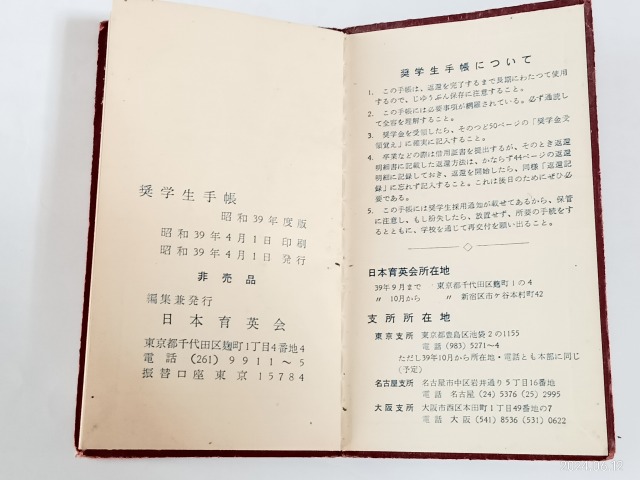 奨学生手帳
昭和39年度版
昭和39年4月1日 印刷
昭和39年4月1日 発行
非売品
編集兼発行
日本育英会
東京都千代田区麹町1丁目4番地4
電話 (261) 9911〜5
振替口座 東京 15784
奨学生手帳について
1. この手帳は、返還を完了するまで長期にわたつて使用
するので、じゆうぶん保存に注意すること。
2. この手帳には必要事項が網羅されている。必ず通読し
て全容を理解すること。
3. 奨学金を受領したら、そのつど50ページの「奨学金受
領覚え」に確実に記入すること。
4. 卒業などの際は借用証書を提出するが、そのとき返還
明細書に記載した返還方法は、かならず44ページの返還
明細に記録しておき、返還を開始したら、同様「返還記
録」に忘れず記入すること。これは後日のためにぜひ必
要である。
5. この手帳には奨学生採用通知が載せてあるから、保管
に注意し、もし紛失したら、放置せず、所要の手続をす
るとともに、学校を通じて再交付を願い出ること。
日本育英会所在地
39年9月まで 東京都千代田区麹町1の4
〃 10月から 〃 新宿区市ケ谷本村町42
支所所在地
東京支所 東京都豊島区池袋2の1155
電話 (983) 5271〜4
ただし39年10月から所在地・電話とも本部に同じ
(予定)
名古屋支所 名古屋市中区岩井通り5丁目16番地
電話 名古屋 (24) 5376 (25) 2995
大阪支所 大阪市西区本田町1丁目49番地の7
電話 大阪 (541) 8536 (531) 0622